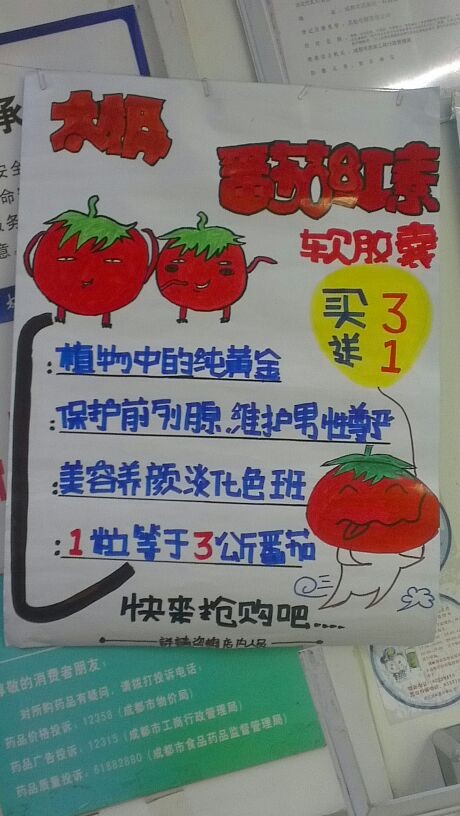 番茄红素
软胶囊
买3
送1
植物中的纯黄金
保护前列腺.维护男性尊严
美容养颜淡化色班
1粒等于3公斤番茄
快来抢购吧....
详情咨询店内人员
尊敬的消费者朋友：
对所购药品有疑问，请拨打投诉电话：
药品价格投诉：12358（成都市物价局）
药品广告投诉：12315（成都市工商行政管理局）
药品质量投诉：61882880（成都市食品药品监督管理局）